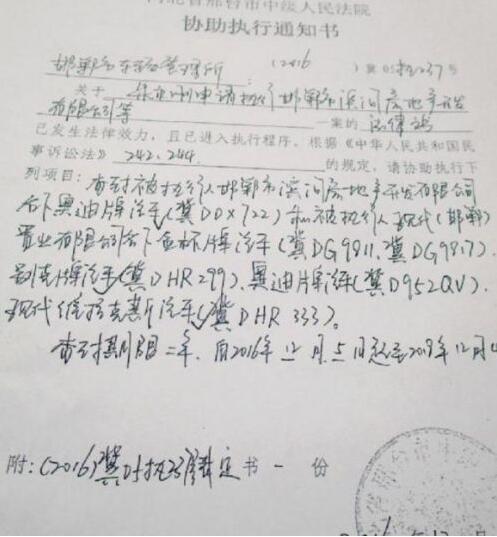 河北省邢台市中级人民法院
协助执行通知书
邯郸市车辆管理所 (2016) 冀05执237号
关于 申请执行邯郸市滨河房地产开发
有限公司等 一案的 法律
已发生法律效力，且已进入执行程序。根据《中华人民共和国民
事诉讼法》 242、244 的规定，请协助执行下
列项目：查封被执行人邯郸市滨河房地产开发有限公司
名下奥迪牌汽车(冀DDX722) 和被执行人现代(邯郸)
置业有限公司名下 牌汽车(冀DG9811、冀DG9817)、
别克牌汽车(冀DHR299)、奥迪牌汽车(冀D952QV)、
现代维拉克斯汽车(冀DHR333)。
查封期限 年，自2016年12月5日起至2019年12月4
附：(2016)冀05执237 裁定书一份